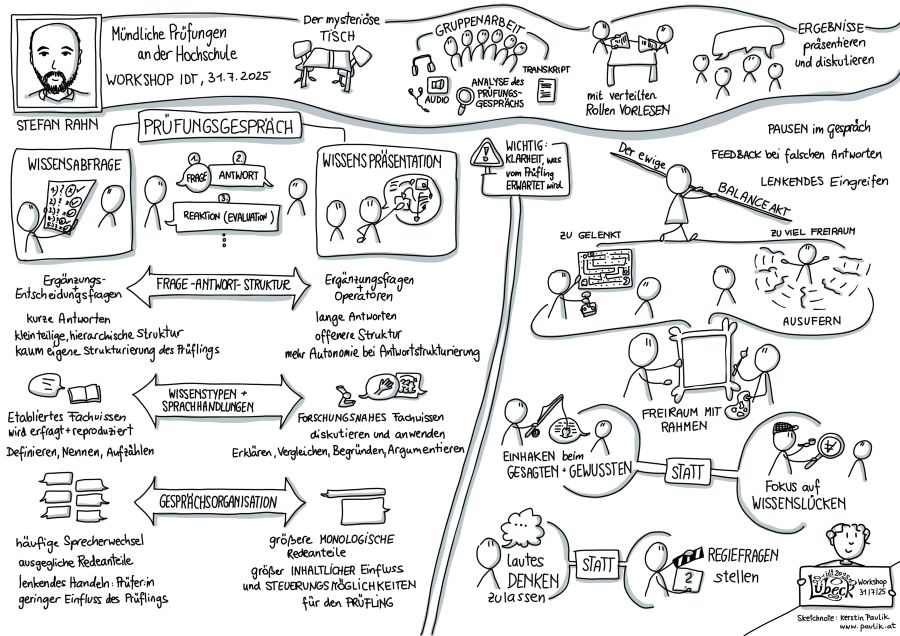 Mündliche Prüfungen
an der Hochschule
WORKSHOP IDT, 31.7.2025
STEFAN RAHN
Der mysteriöse
TISCH
GRUPPENARBEIT
AUDIO
ANALYSE des
PRÜFUNGS-
GESPRÄCHS
TRANSKRIPT
mit verteilten
Rollen VORLESEN
ERGEBNISSE
präsentieren
und diskutieren
PRÜFUNGSGESPRÄCH
WISSENSABFRAGE
1.) ?
2.) ?
3.) ?
1.
FRAGE
2.
ANTWORT
3.
REAKTION (EVALUATION)
WISSENSPRÄSENTATION
Ergänzungs-
Entscheidungsfragen
kurze Antworten
kleinteilige, hierarchische Struktur
kaum eigene Strukturierung des Prüflings
FRAGE-ANTWORT-STRUKTUR
Ergänzungsfragen
+
Operatoren
lange Antworten
offenere Struktur
mehr Autonomie bei Antwortstrukturierung
Etabliertes Fachwissen
wird erfragt + reproduziert
Definieren, Nennen, Aufzählen
WISSENSTYPEN +
SPRACHHANDLUNGEN
FORSCHUNGSNAHES Fachwissen
diskutieren und anwenden
Erklären, Vergleichen, Begründen, Argumentieren
häufige Sprecherwechsel
ausgegliche Redeanteile
lenkendes Handeln: Prüfer:in
geringer Einfluss des Prüflings
GESPRÄCHSORGANISATION
größere MONOLOGISCHE
Redeanteile
großer INHALTLICHER Einfluss
und STEUERUNGSMÖGLICHKEITEN
für den PRÜFLING
WICHTIG:
KLARHEIT, was
vom Prüfling
ERWARTET wird
PAUSEN im Gespräch
FEEDBACK bei falschen Antworten
LENKENDES Eingreifen
Der ewige
BALANCEAKT
ZU GELENKT
ZU VIEL FREIRAUM
AUSUFERN
FREIRAUM MIT
RAHMEN
EINHAKEN beim
GESAGTEN + GEWUSSTEN
STATT
Fokus auf
WISSENSLÜCKEN
lautes
DENKEN
zulassen
STATT
2
REGIEFRAGEN
stellen
idt 2025
Lübeck
Workshop
31/7/25
Sketchnote: Kerstin Paulik
www.paulik.at